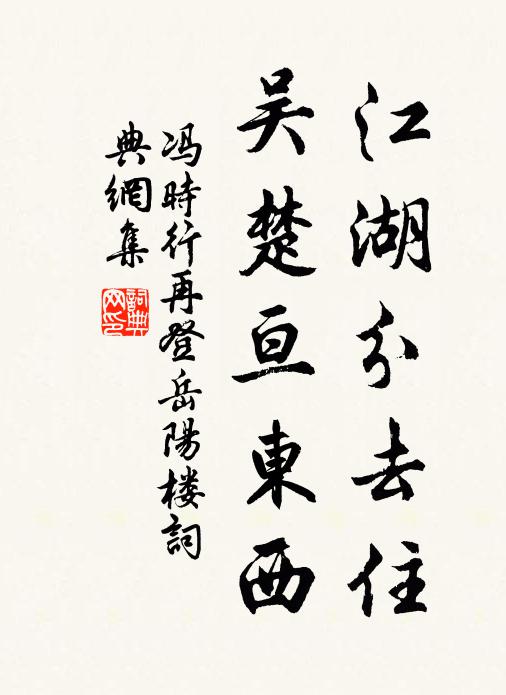 江湖分去住
吴楚亘東西
冯時行再登岳陽楼詞
典網集
詞典
网印